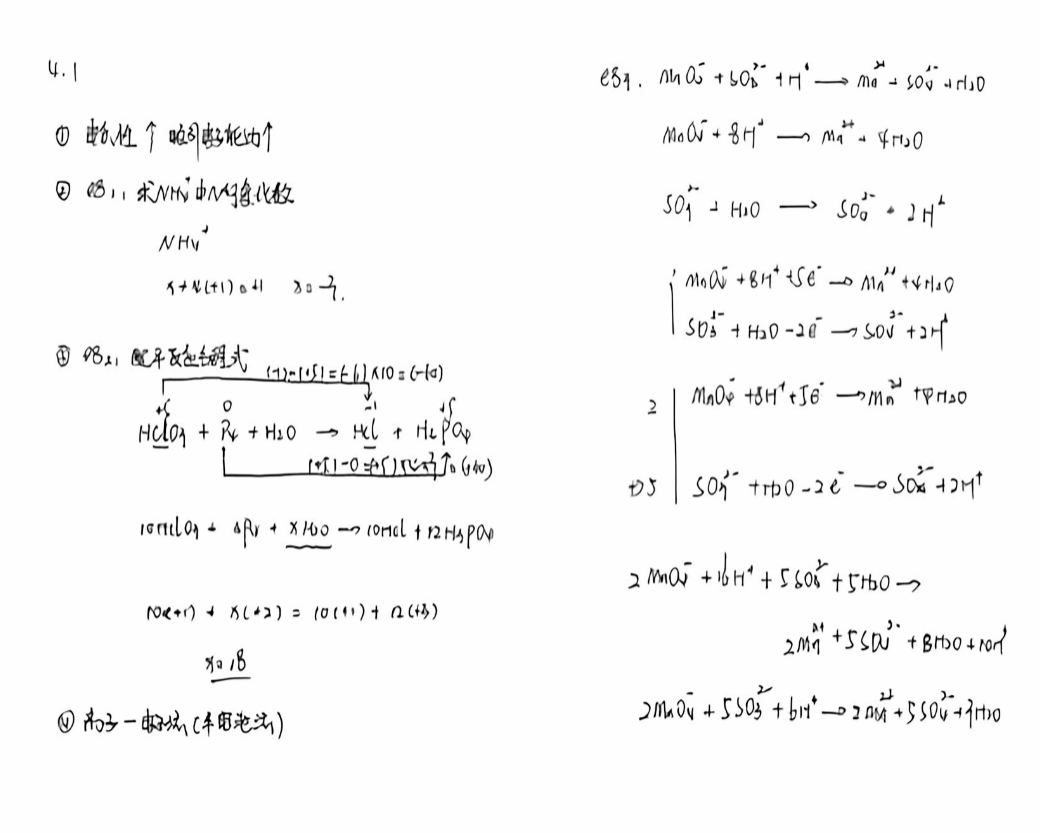 4.1
① 电负性↑ 吸引电子能力↑
② eg1, 求NH₄⁺中N的氧化数
NH₄⁺
x+4(+1)=+1 x=-3.
③ eg2, 配平反应方程式
(-1)-(+5)=(-6)×10=(-60)
+5 0 -1 +5
HClO₃ + P₄ + H₂O → HCl + H₃PO₄
[(+5)-0=+5]
10HClO₃ + 3P₄ + xH₂O → 10HCl + 12H₃PO₄
10(+1) + x(+2) = 10(+1) + 12(+3)
x=18
④ 离子-电子法(半电池法)
eg1. MnO₄⁻ + SO₃²⁻ + H⁺ → Mn²⁺ + SO₄²⁻ + H₂O
MnO₄⁻ + 8H⁺ → Mn²⁺ + 4H₂O
SO₃²⁻ + H₂O → SO₄²⁻ + 2H⁺
MnO₄⁻ + 8H⁺ + 5e⁻ → Mn²⁺ + 4H₂O
SO₃²⁻ + H₂O - 2e⁻ → SO₄²⁻ + 2H⁺
2 | MnO₄⁻ + 8H⁺ + 5e⁻ → Mn²⁺ + 4H₂O
+) 5 | SO₃²⁻ + H₂O - 2e⁻ → SO₄²⁻ + 2H⁺
2MnO₄⁻ + 16H⁺ + 5SO₃²⁻ + 5H₂O →
2Mn²⁺ + 5SO₄²⁻ + 8H₂O + 10H⁺
2MnO₄⁻ + 5SO₃²⁻ + 6H⁺ → 2Mn²⁺ + 5SO₄²⁻ + 3H₂O